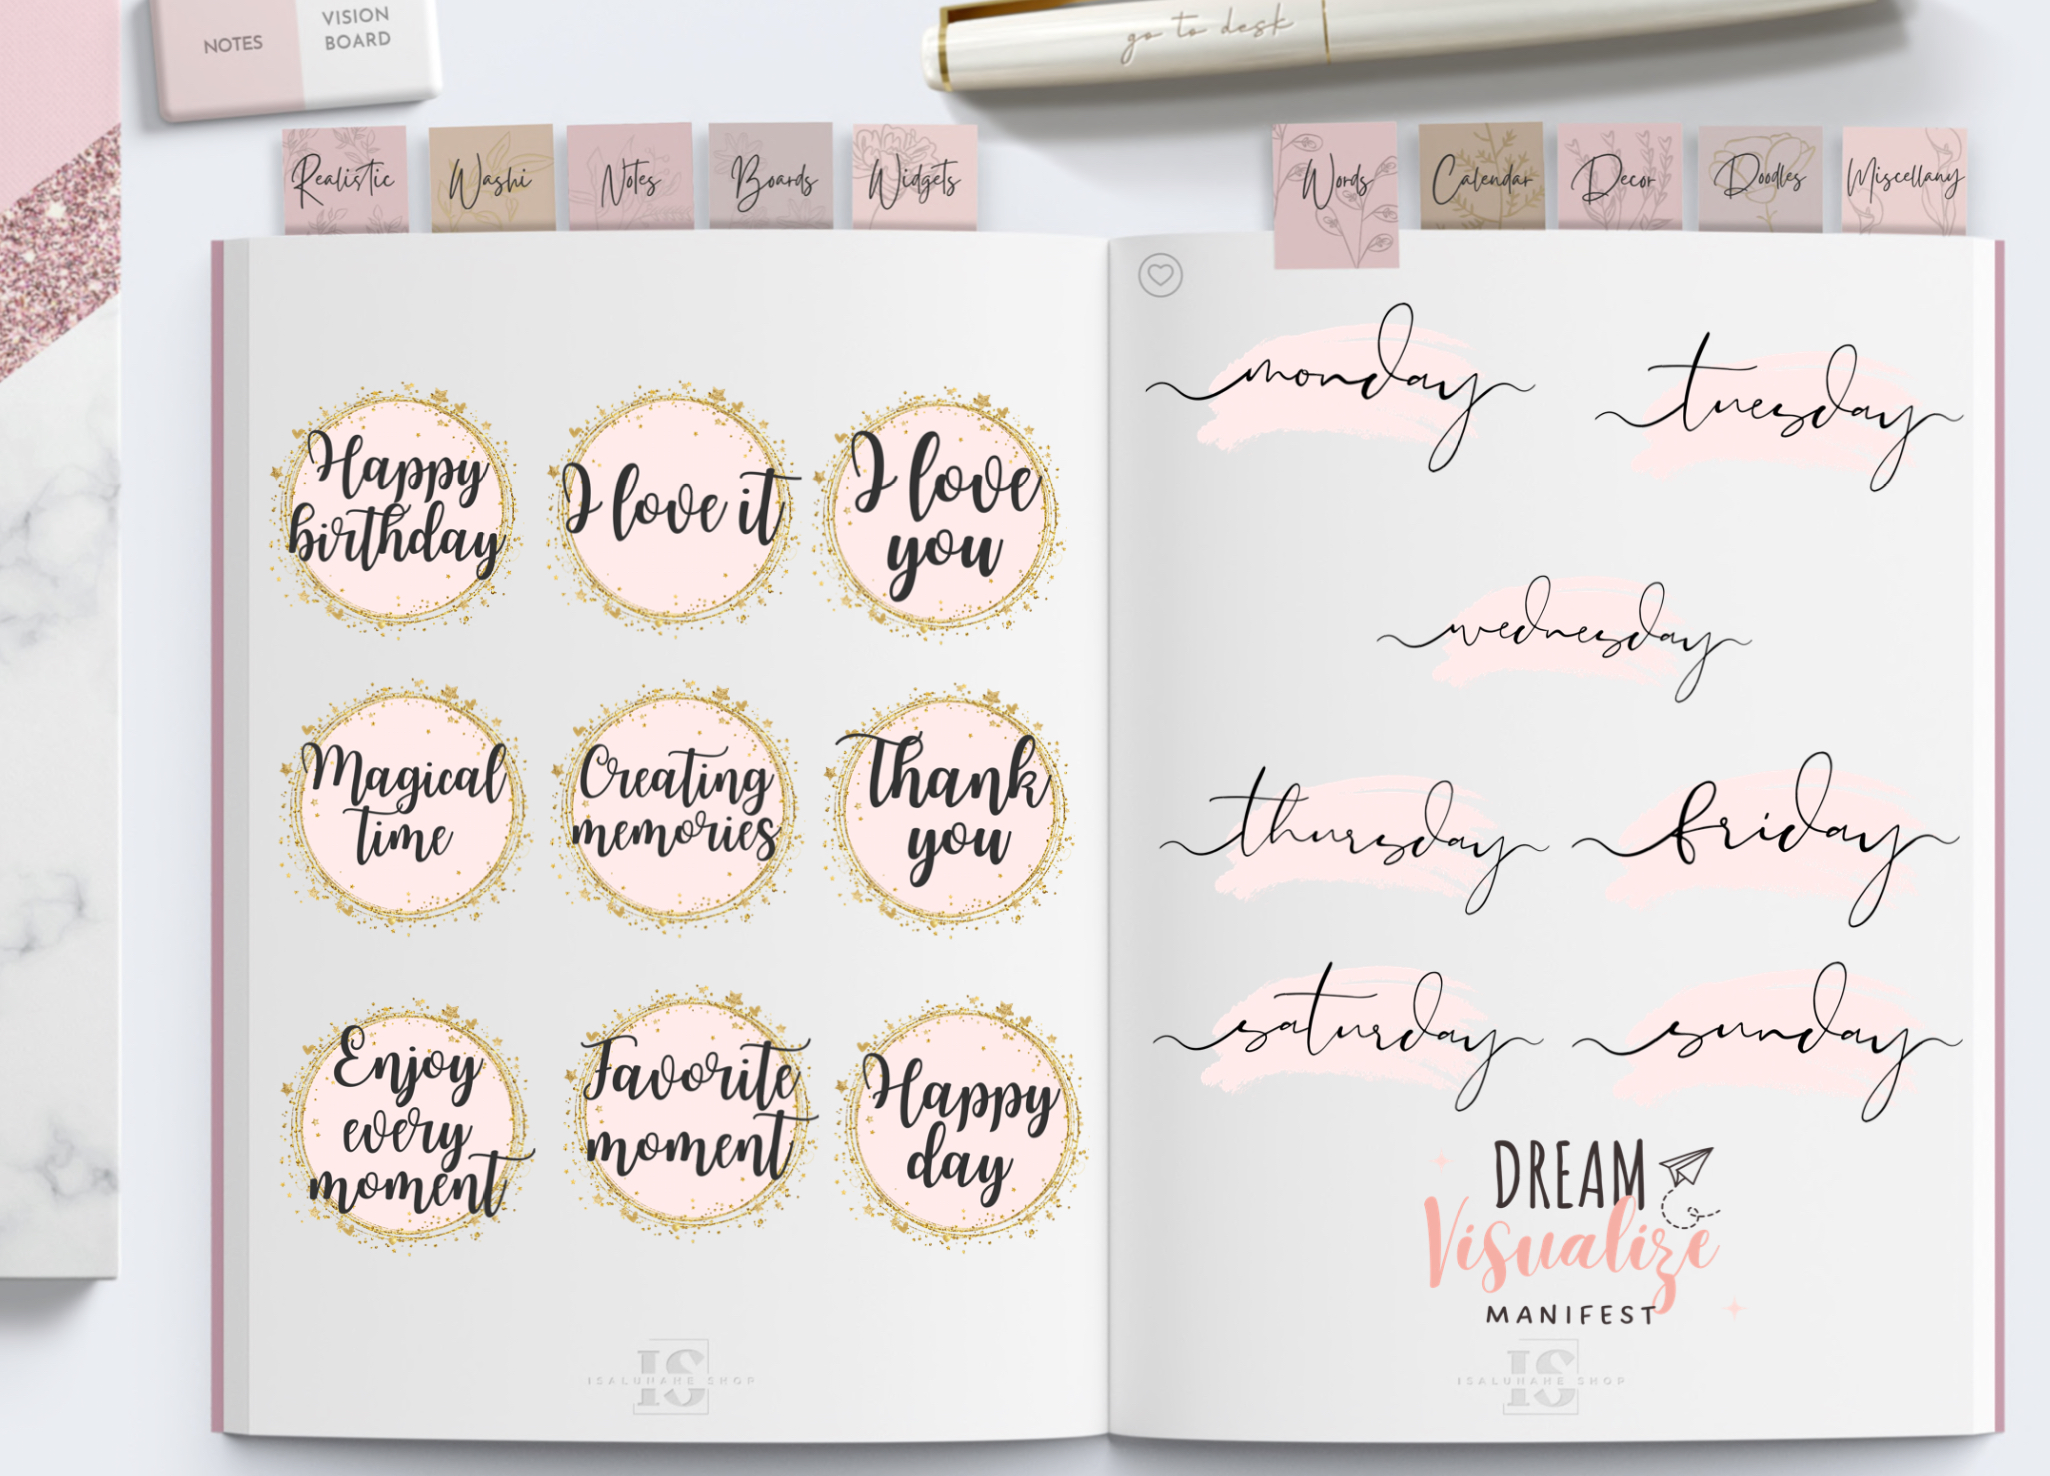 NOTES
VISION
BOARD
go to desk
Realistic
Washi
Notes
Boards
Widgets
Words
Calendar
Decor
Doodles
Miscellany
Happy
birthday
I love it
I love
you
Magical
time
Creating
memories
Thank
you
Enjoy
every
moment
Favorite
moment
Happy
day
IS
ISALUNAHE SHOP
monday
tuesday
wednesday
thursday
friday
saturday
sunday
DREAM
Visualize
MANIFEST
IS
ISALUNAHE SHOP